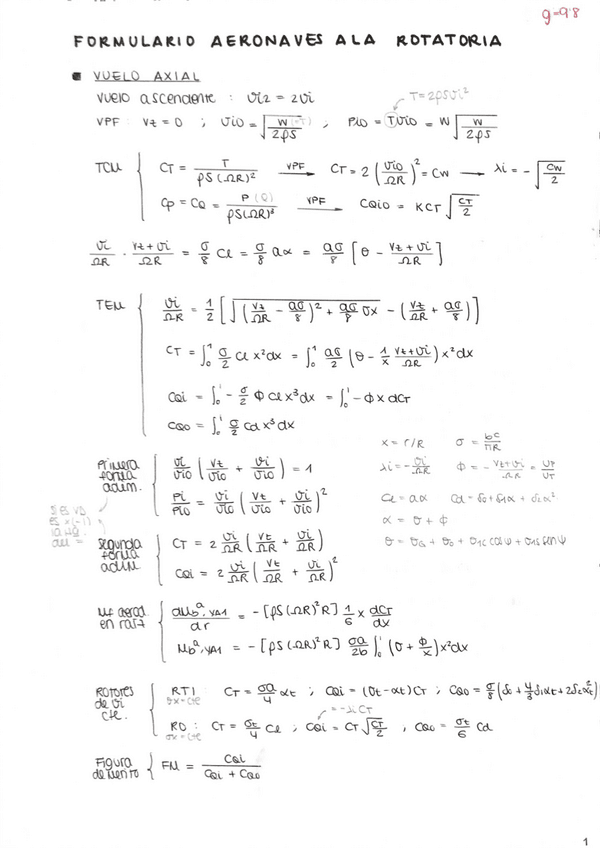 g=9.8
FORMULARIO AERONAVES ALA ROTATORIA
VUELO AXIAL
vuelo ascendente : vi2 = 2vi
T=2ρSvi²
VPF : Vz = 0 ; vi0 = √(W(=T)/2ρS) , Pi0 = Tvi0 = W√(W/2ρS)
TCM { CT = T/ρS(ΩR)² VPF → CT = 2(vi0/ΩR)² = CW → λi = -√(CW/2)
CP = CQ = P(Q)/ρS(ΩR)³ VPF → CQi0 = KCT√(CT/2)
vi/ΩR · Vz+vi/ΩR = σ/8 Cl = σ/8 aα = aσ/8 [θ - Vz+vi/ΩR]
TEM { vi/ΩR = 1/2 [√((Vz/ΩR - aσ/8)² + aσ/8 θx) - (Vz/ΩR + aσ/8)]
CT = ∫₀¹ σ/2 Cl x²dx = ∫₀¹ aσ/2 (θ - 1/x Vz+vi/ΩR) x²dx
CQi = ∫₀¹ - σ/2 Φ Cl x³dx = ∫₀¹ -Φ x dCT
CQ0 = ∫₀¹ σ/2 Cd x³dx
x = r/R σ = bc/πR
Primera forma adim. { vi/vi0 (Vz/vi0 + vi/vi0) = 1
λi = - vi/ΩR Φ = - Vz+vi/ΩR = UP/UT
Pi/Pi0 = vi/vi0 (Vz/vi0 + vi/vi0)²
Cl = aα Cd = δ0+δ1α+δ2α²
α = θ + Φ
segunda forma adim { CT = 2 vi/ΩR (Vz/ΩR + vi/ΩR)
θ = θG + θ0 + θ1C cosψ + θ1S senψ
CQi = 2 vi/ΩR (Vz/ΩR + vi/ΩR)²
Mf aerod. en raíz { dMbᵃ,YA1/dr = -[ρS(ΩR)²R] 1/6 x dCT/dx
Mbᵃ,YA1 = -[ρS(ΩR)²R] σa/2b ∫₀¹ (θ + Φ/x) x²dx
ROTORES de vi cte. { RTI : CT = σa/4 αt ; CQi = (θt-αt)CT ; CQ0 = σ/8 (δ0 + 4/3 δ1αt + 2δ2αt²)
θx=cte
= -λi CT
RO : CT = σt/4 Cl ; CQi = CT√(CT/2) , CQ0 = σt/6 Cd
σx=cte
Figura de mérito { FM = CQi/CQi + CQ0
1